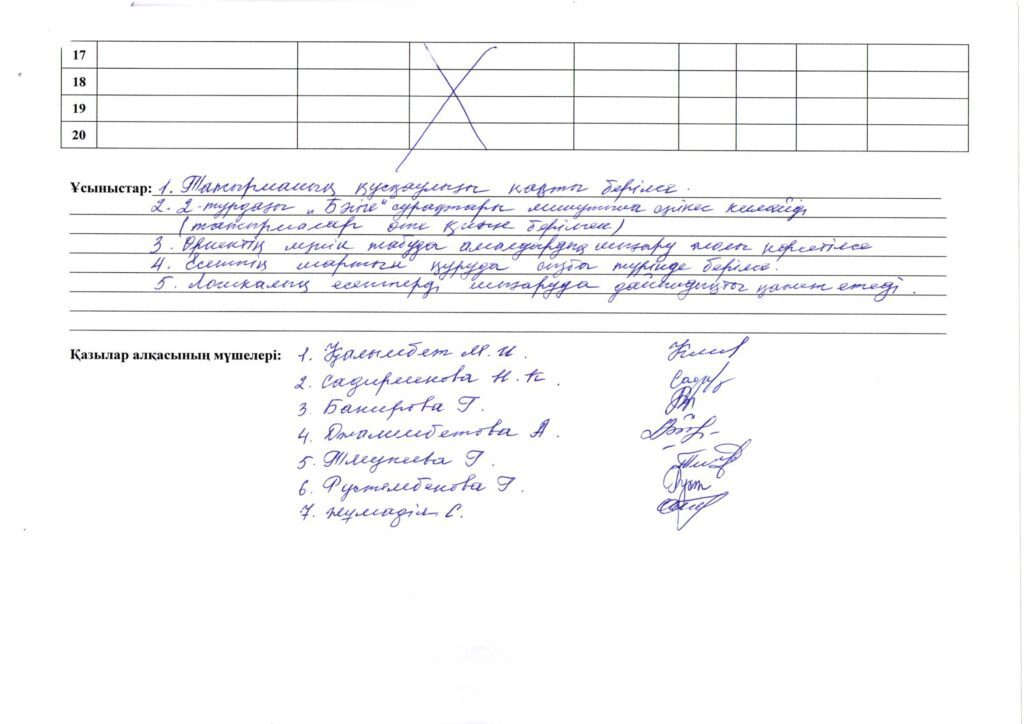 17
18
19
20
Ұсыныстар: 1. Тапсырманың нұсқаулығы нақты берілсе.
2. 2-турдағы „Бәйге" сұрақтары минутына сәйкес келмейді
(тапсырмалар өте қиын берілген)
3. Өрнектің мәнін табуда амалдардың шығару жолы көрсетілсе
4. Есептің шартын құруда сызба түрінде берілсе.
5. Логикалық есептерді шығаруда дайындықты қажет етеді.
Қазылар алқасының мүшелері: 1. Қалымбет М. И.
2. Садирменова Н. К.
3. Бакирова Г.
4. Джалимбетова А.
5. Тлеукеева Г.
6. Рустембекова Г.
7. Жұмаділ С.